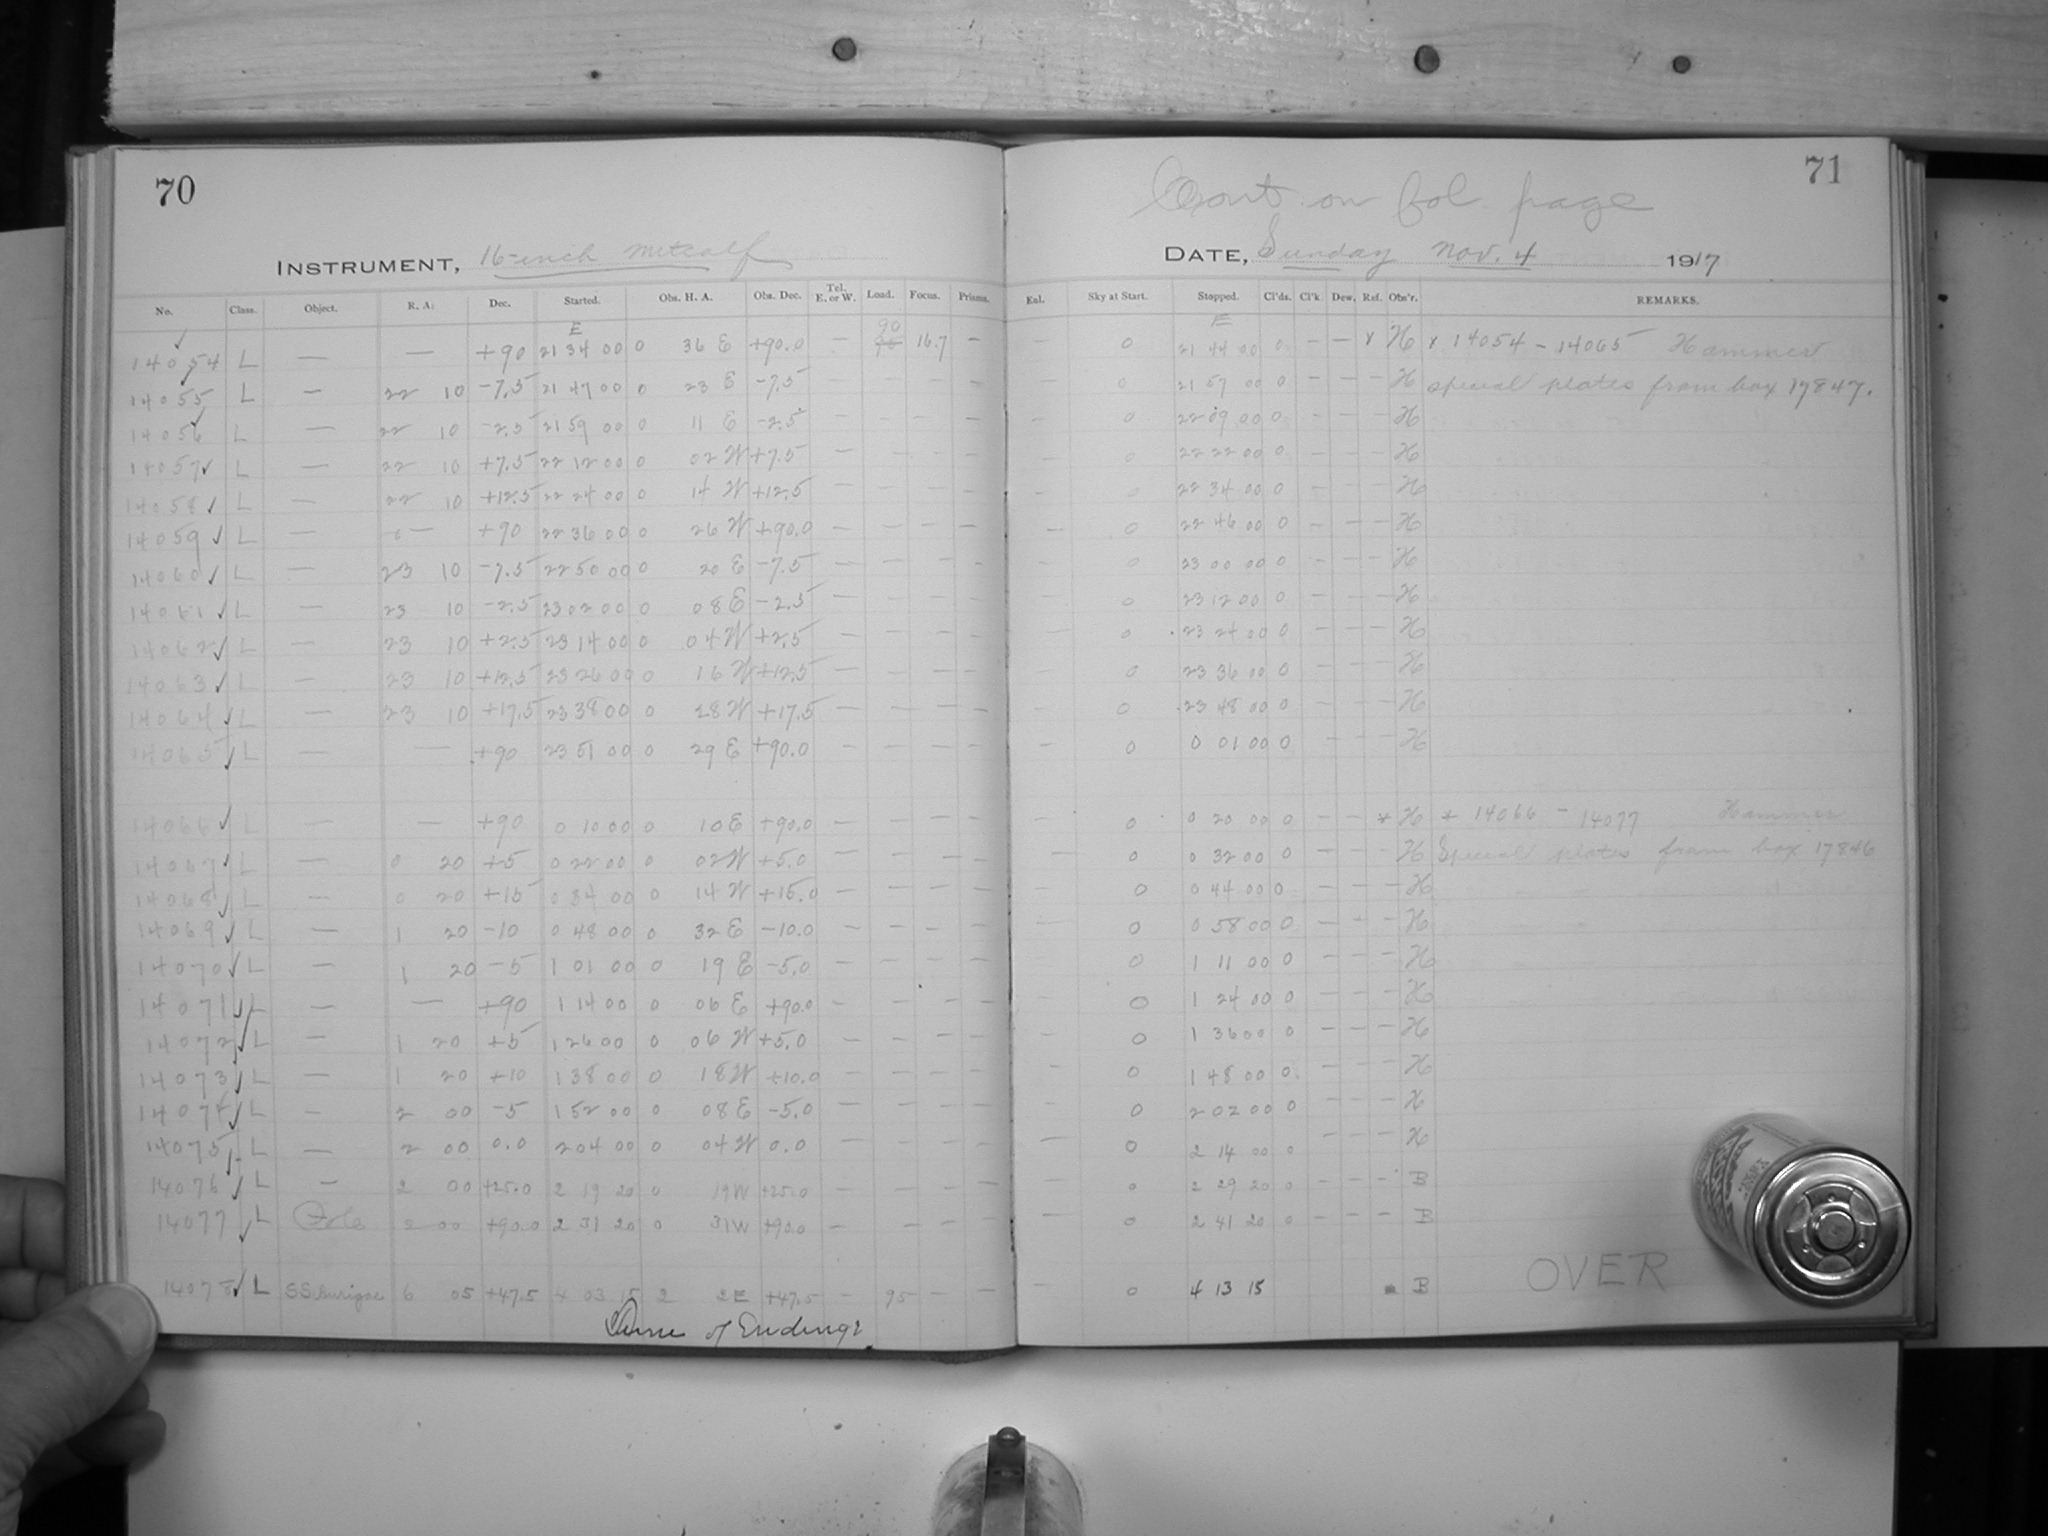 70
INSTRUMENT, 16-inch Metcalf
No. Class. Object. R. A. Dec. Started. Obs. H. A. Obs. Dec. Tel. E. or W. Load. Focus. Prisms.
E 90
14054 L — — +90 21 34 00 0 36 E +90.0 — 16.7 —
14055 L — 22 10 -7.5 21 47 00 0 23 E -7.5 — — — —
14056 L — 22 10 -2.5 21 59 00 0 11 E -2.5 — — — —
14057 L — 22 10 +7.5 22 12 00 0 02 W +7.5 — — — —
14058 L — 22 10 +12.5 22 24 00 0 14 W +12.5 — — — —
14059 L — — +90 22 36 00 0 26 W +90.0 — — — —
14060 L — 23 10 -7.5 22 50 00 0 20 E -7.5 — — — —
14061 L — 23 10 -2.5 23 02 00 0 08 E -2.5 — — — —
14062 L — 23 10 +2.5 23 14 00 0 04 W +2.5 — — — —
14063 L — 23 10 +12.5 23 26 00 0 16 W +12.5 — — — —
14064 L — 23 10 +17.5 23 38 00 0 28 W +17.5 — — — —
14065 L — — +90 23 51 00 0 29 E +90.0 — — — —
14066 L — — +90 0 10 00 0 10 E +90.0 — — — —
14067 L — 0 20 +5 0 22 00 0 02 W +5.0 — — — —
14068 L — 0 20 +15 0 34 00 0 14 W +15.0 — — — —
14069 L — 1 20 -10 0 48 00 0 32 E -10.0 — — — —
14070 L — 1 20 -5 1 01 00 0 19 E -5.0 — — — —
14071 L — — +90 1 14 00 0 06 E +90.0 — — — —
14072 L — 1 20 +5 1 26 00 0 06 W +5.0 — — — —
14073 L — 1 20 +10 1 38 00 0 18 W +10.0 — — — —
14074 L — 2 00 -5 1 52 00 0 08 E -5.0 — — — —
14075 L — 2 00 0.0 2 04 00 0 04 W 0.0 — — — —
14076 L — 2 00 +25.0 2 19 20 0 19 W +25.0 — — — —
14077 L Pole 2 00 +90.0 2 31 20 0 31 W +90.0 — — — —
14078 L SS Aurigae 6 05 +47.5 4 03 15 2 2 E +47.5 — 95 — —
Time of Endings
71
Cont on fol page
DATE, Sunday Nov. 4 1917
Enl. Sky at Start. Stopped. Cl'ds. Cl'k. Dew. Ref. Obs'r. REMARKS.
E
— 0 21 44 00 0 — — x H x 14054 - 14065 Hammer
— 0 21 57 00 0 — — — H special plates from box 17847.
— 0 22 09 00 0 — — — H
— 0 22 22 00 0 — — — H
0 22 34 00 0 — — — H
— 0 22 46 00 0 — — — H
0 23 00 00 0 — — — H
0 23 12 00 0 — — — H
— 0 23 24 00 0 — — — H
0 23 36 00 0 — — — H
— 0 23 48 00 0 — — — H
— 0 0 01 00 0 — — — H
— 0 0 20 00 0 — — * H * 14066 - 14077 Hammer
— 0 0 32 00 0 — — — H Special plates from box 17846
— 0 0 44 00 0 — — — H
— 0 0 58 00 0 — — — H
— 0 1 11 00 0 — — — H
— 0 1 24 00 0 — — — H
— 0 1 36 00 0 — — — H
— 0 1 48 00 0 — — — H
— 0 2 02 00 0 — — — H
— 0 2 14 00 0 — — — H
— 0 2 29 20 0 — — — B
— 0 2 41 20 0 — — — B
— 0 4 13 15 B OVER